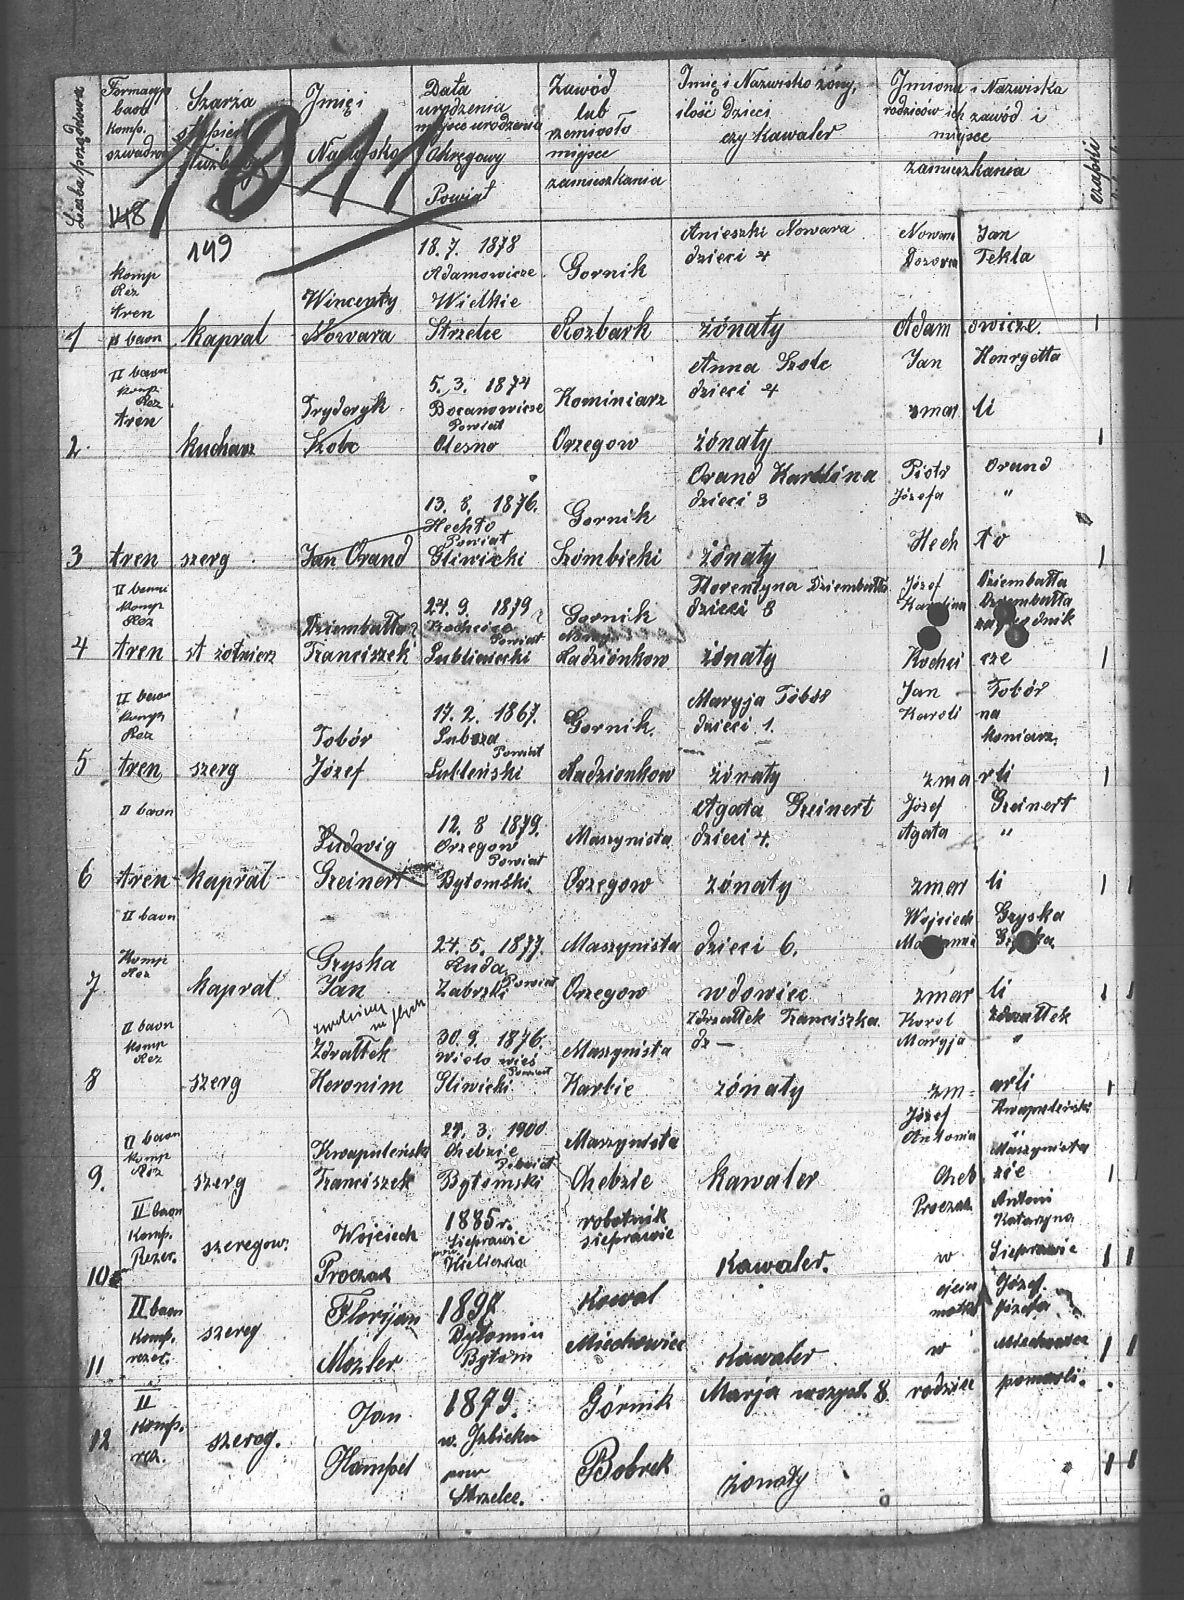 Liczba porządkowa
Formacya baon komp. szwadron
Szarża stopień służb
Imię i Nazwisko
Data urodzenia miejsce urodzenia Okręgowy Powiat
Zawód lub rzemiosło miejsce zamieszkania
Imię i Nazwisko żony, ilość dzieci czy kawaler
Imiona i Nazwiska rodziców ich zawód i miejsce zamieszkania
czapki
1011
148
149
18. 7. 1878 Anieszki Nowara Jan
Adamowicze Gornik dzieci 4 Dozorca Tekla
komp Rez
tren Wincenty Wielkie
1 baon kapral Nowara Strzelce Rozbark żónaty Adam owicze 1
II baon Anna Szolc Jan Henrgetta
komp Rez 5. 3. 1874 Kominiarz dzieci 4
tren Frydoryk Bocanowicze zmar li
Powiat
2. kucharz Szolc Olesno Orzegow żónaty 1
Orand Karolina Piotr Orand
13. 8. 1876. Gornik dzieci 3 Józefa "
Hechto
Powiat Hech to
3 tren szerg. Jan Orand Gliwicki Szombieki żónaty 1
II baon Florentyna Dziembałta Józef Dziembałta
komp Rez 24. 9. 1879 Gornik dzieci 8 Karolina Dziembałta
Dziembałta Kochcice Powiat
4 tren st żołnierz Franciszek Lubliniecki Radzionkow żónaty Kochci cze 1
II baon Maryja Tobór Jan Tobór
komp Rez 17. 2. 1867. Gornik dzieci 1. Karoli na
Tobór Lubsza Powiat koniarz.
5 tren szerg Józef Lubleński Radzionkow żónaty zma rli 1
II baon Agata Greinert Józef Greinert
12. 8 1879. Maszynista dzieci 4. Agata "
Ludwig Orzegow Powiat
6 tren kapral Greinert Bytomski Orzegow zónaty zmar li 1 1
II baon Wojciech Gryska
24. 5. 1877. Maszynista dzieci 6.
Komp Rez Gryska Ruda
7 kapral Jan Zabrzki Powiat Orzegow wdowiec zmar li 1 1
II baon Zdrzałtek Franciszka Karol Zdrałtek
komp Rez Zdrałtek 30. 9. 1876. Maszynista dz — Maryja "
Wielo wieś Powiat
8 szerg Heronim Gliwicki Karbie zónaty zm- arli 1 1
Józef Kwapuleński
II baon 27. 3. 1900 Maszynista Antonia "
komp Rez Kwapuleński Chebzie Powiat Maszynista
9. szerg Franciszek Bytomski Chebzie kawaler Cheb zie 1 1
II baon 1885 r. robotnik Proczak Antoni
Komp. Wojciech Sieprawie sieprawie Katarzyna
Rezer. szeregow. pow. Wieliczka w Sieprawie
10 Proczak kawaler. 1 1
II baon Florijan 1897 Kowal ojcia Józef
komp. szereg Bytomiu matka Józefa
11 rezer. Mozler Bytom Miechowiec kawaler w Miechowice 1 1
II 1879. Górnik Marja 8 rodzice pomarli.
komp. Jan w.
12 rez. szereg. Hampel pow Strzelce. Bobrek żonaty 1 1